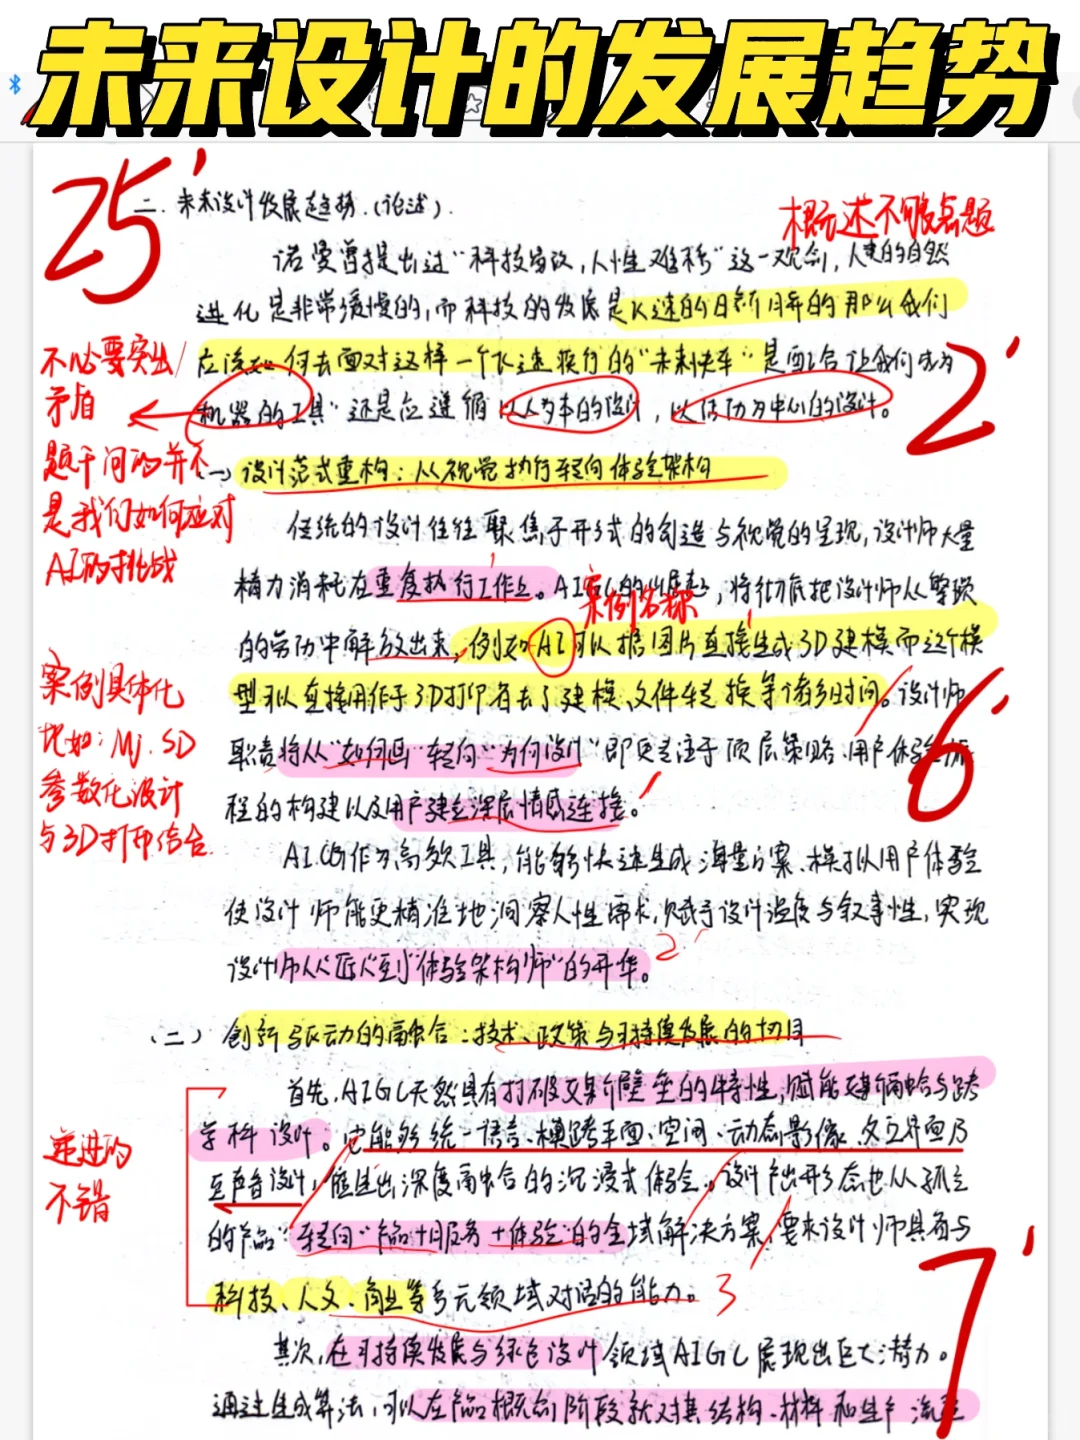 未来设计的发展趋势
25'
二. 未来设计发展趋势.(论述).
概述不够点题
诺曼曾提出过"科技易改,人性难移"这一观念,人类的自然
进化是非常缓慢的,而科技的发展是飞速的日新月异的那么我们
应该如何去面对这样一个飞速换行的"未来快车"是配合让我们成为
机器的工具"还是应遵循以人为本的设计,以活动为中心的设计。
2'
不必要突出
矛盾
题干问的并不
是我们如何应对
AI的挑战
(一)设计范式重构:从视觉执行转向体验架构
传统的设计往往聚焦于形式的创造与视觉的呈现,设计师大量
精力消耗在重复执行工作上。AIGC的出现,将彻底把设计师从繁琐
案例名称
的劳动中解放出来,例如AI可以据图片直接生成3D建模而这个模
型可以直接用作于3D打印省去了建模、文件转换等诸多时间。设计师
职责将从"如何画"转向"为何设计"即更专注于顶层策略、用户体验
程的构建以及用户建立深层情感连接。
6'
案例具体化
比如:Mj.SD
参数化设计
与3D打印结合
AIGC作为高效工具,能够快速生成海量方案、模拟用户体验
使设计师能更精准地洞察人性需求,赋予设计温度与叙事性,实现
设计师从"匠人"到"体验架构师"的升华。
2'
(二)创新驱动的融合:技术、政策与可持续发展的协同
首先,AIGC天然具有打破艾斯壁垒的特性,赋能融合与跨
学科设计。它能够统一语言、横跨平面、空间、动态影像、交互界面乃
至声音设计,催生出深度融合的沉浸式体验。设计产出形态也从孤立
的产品"转向"产品+服务+体验"的全域解决方案,要求设计师具有与
科技、人文、商业等多元领域对话的能力。
3'
递进的
不错
7'
其次,在可持续发展与绿色设计领域AIGC展现出巨大潜力。
通过生成算法,可以在产品概念阶段就对其结构、材料和生产流程